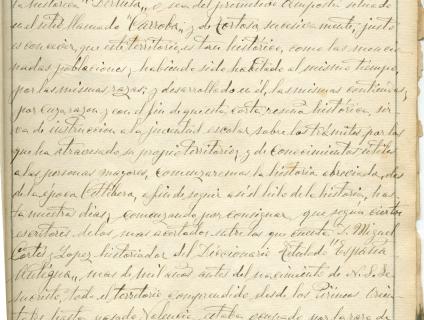 la histórica "Dertusa", o sea del primitivo Amposta situado
en el sitio llamado "Carroba", y de Tortosa sucesivamente, justo
es conocer, que este territorio es tan histórico, como las mencio
nadas poblaciones, habiendo sido habitado al mismo tiempo,
por las mismas razas, y desarrollado en él, las mismas
por cuya razon, y con el fin de que esta corta reseña histórica, sir
va de instrucción a la juventud escolar sobre los trámites por los
que ha atravesado su propio territorio, y de conocimientos utiles
a las personas mayores, comenzaremos la historia abreviada, des
de la época Celtíbera, a fin de seguir así el hilo de la historia, has
ta nuestros dias, comenzando por consignar, que según ciertos
escritores, de los mas acertados entre los que cuenta D. Miguel
Cortés y Lopez historiador del Diccionario titulado "España
Antigua", mas de mil años antes del nacimiento de N. S. Je
sucristo, todo el territorio comprendido, desde los Pirineos Orien
tales hasta Valencia, estaba ocupado por la raza de